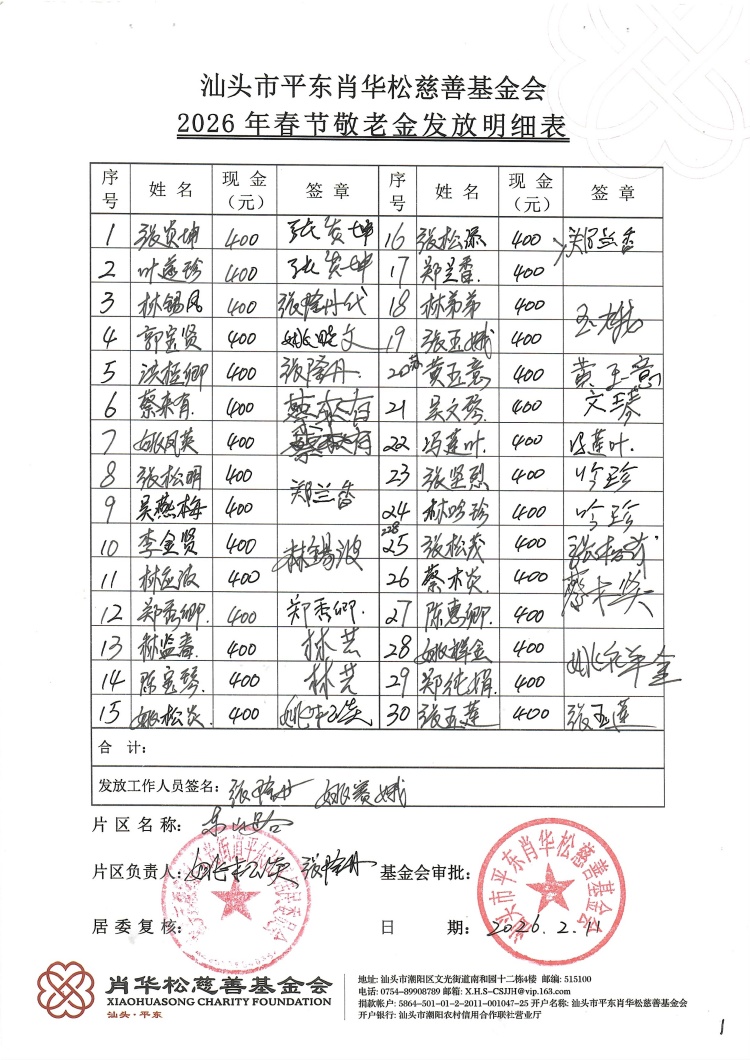 汕头市平东肖华松慈善基金会
2026 年春节敬老金发放明细表
序号 姓 名 现 金（元） 签 章 序号 姓 名 现 金（元） 签 章
1 张炎坤 400 张炎坤 16 张松添 400 郑兰香
2 叶莲珍 400 张炎坤 17 郑兰香 400
3 林锡凤 400 张隆丹代 18 林弟弟 400
4 郭宝贤 400 姚晓文 19 张玉娥 400 玉娥
5 洪桂卿 400 张隆丹 20 黄玉意 400 黄玉意
6 蔡来有 400 蔡来有 21 吴文琴 400 文琴
7 姚凤英 400 蔡来有 22 冯莲叶 400 冯莲叶
8 张松明 400 23 张坚烈 400 吟珍
9 吴燕梅 400 郑兰香 24 林吟珍 400 吟珍
10 李金贤 400 林锡波 25 张松茂 400 张松茂
11 400 26 蔡木炎 400 蔡木炎
12 郑秀卿 400 郑秀卿 27 陈惠卿 400
13 400 林芸 28 姚祥金 400
14 陈宝琴 400 林芸 29 郑纯娟 400
15 姚松炎 400 30 张玉莲 400 张玉莲
合 计：
发放工作人员签名：张隆丹 姚赛娥
片 区 名 称：
片区负责人：姚松炎 张隆丹 基金会审批：
汕头市平东肖华松慈善基金会
居 委 复 核： 日 期：2026.2.11
肖华松慈善基金会
XIAOHUASONG CHARITY FOUNDATION
汕头·平东
地址: 汕头市潮阳区文光街道南和园十二栋4楼 邮编: 515100
电话: 0754-89908789 邮箱: X.H.S-CSJJH@vip.163.com
捐款帐户: 5864-501-01-2-2011-001047-25 开户名称: 汕头市平东肖华松慈善基金会
开户银行: 汕头市潮阳农村信用合作联社营业厅
1